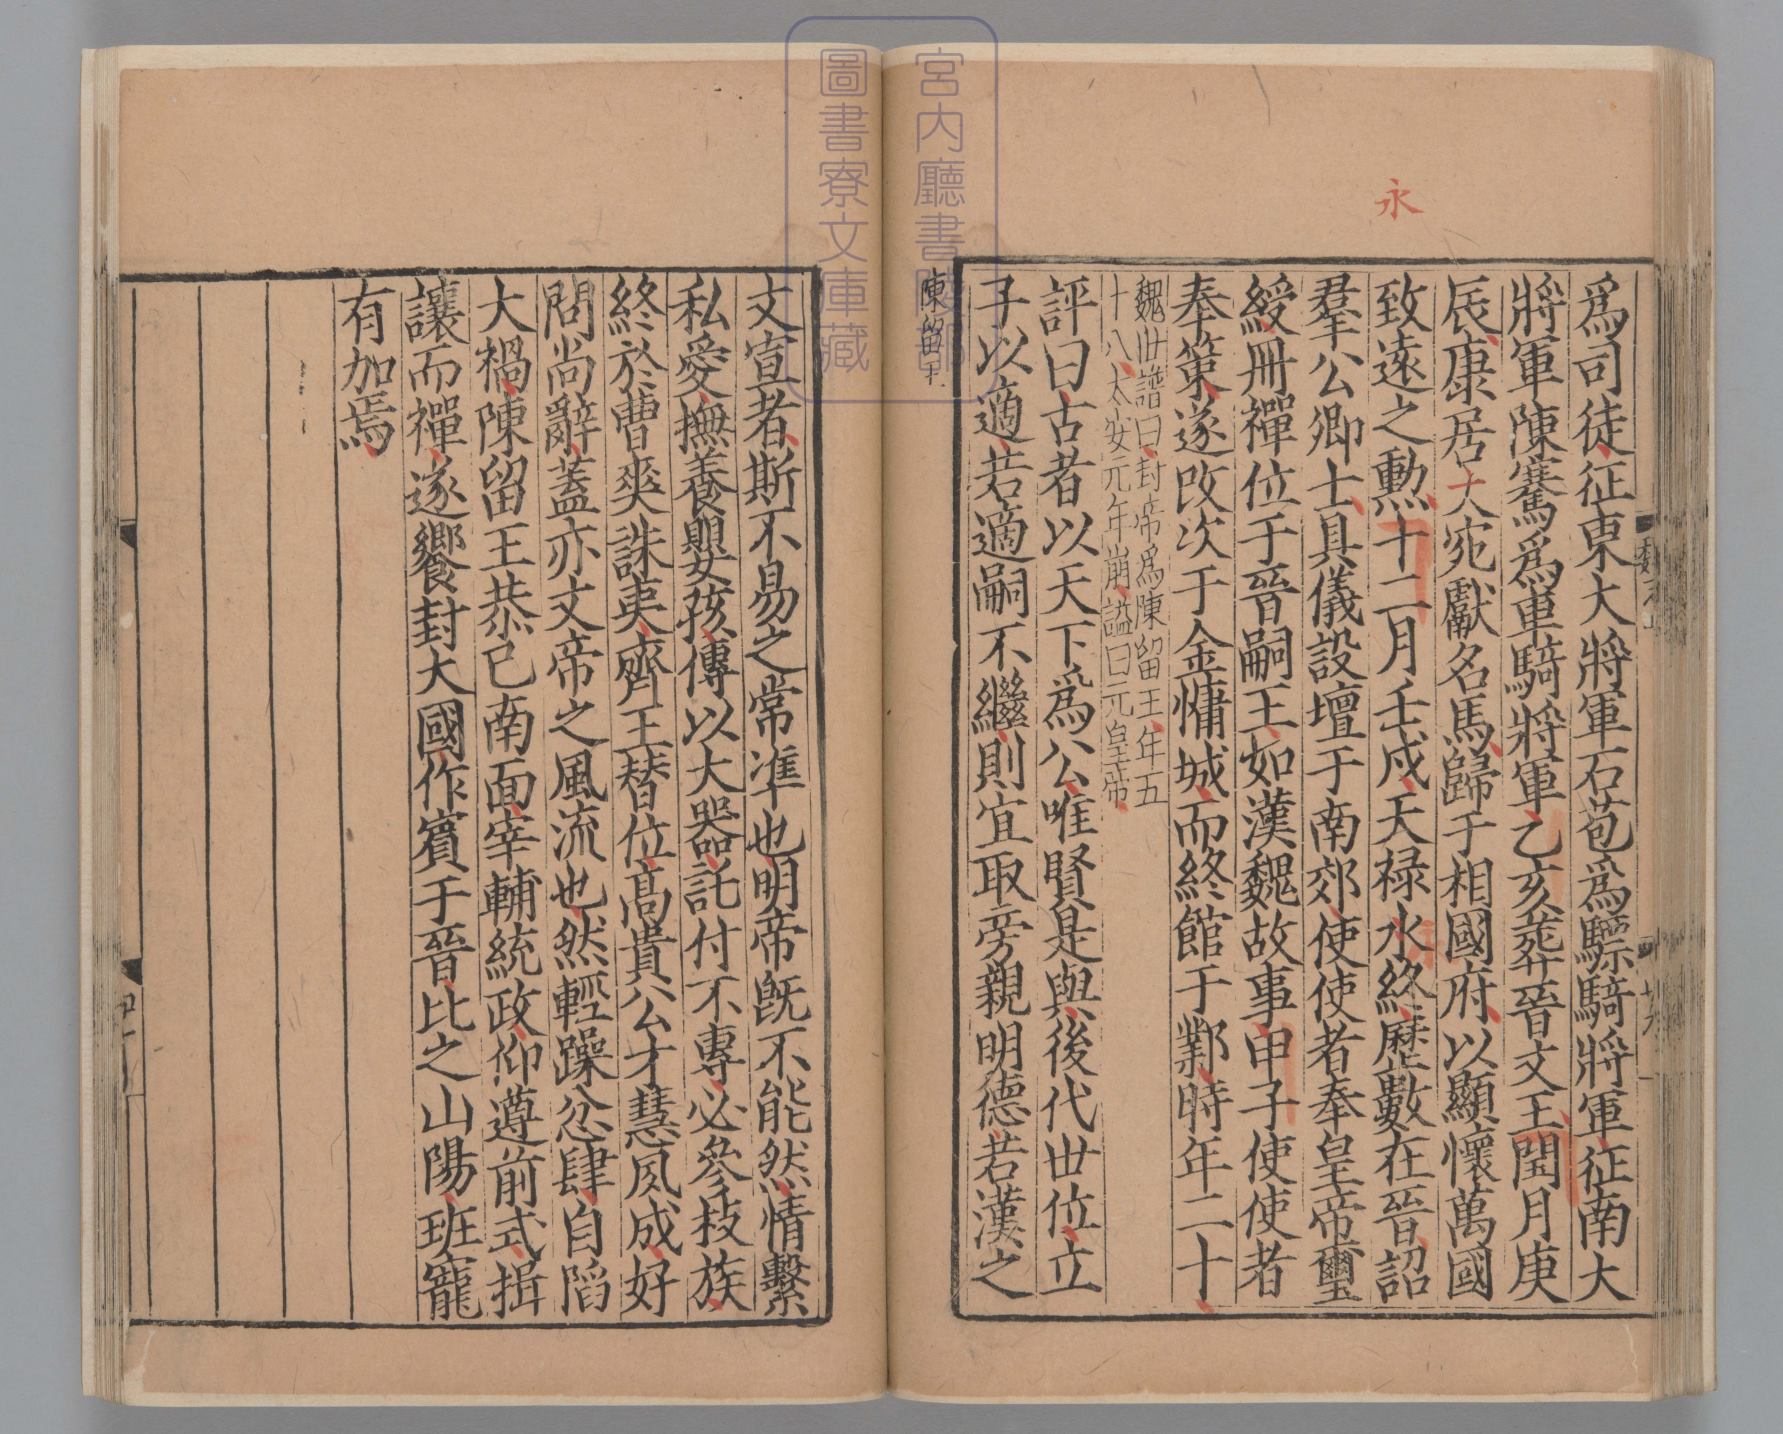 永
爲司徒征東大將軍石苞爲驃騎將軍征南大
將軍陳騫爲車騎將軍乙亥葬晉文王閏月庚
辰康居大宛獻名馬歸于相國府以顯懷萬國
致遠之勲十二月壬戌天禄永終歷數在晉詔
羣公卿士具儀設壇于南郊使使者奉皇帝璽
綬冊禪位于晉嗣王如漢魏故事甲子使使者
奉策遂改次于金墉城而終館于鄴時年二十
魏世譜曰封帝爲陳留王年五
十八太安元年崩謚曰元皇帝
評曰古者以天下爲公唯賢是與後代世位立
子以適若適嗣不繼則宜取旁親明德若漢之
陳留王
文宣者斯不易之常準也明帝旣不能然情繫
私愛撫養嬰孩傳以大器託付不專必參枝族
終於曹爽誅夷齊王替位髙貴公才慧夙成好
問尚辭蓋亦文帝之風流也然輕躁忿肆自䧟
大禍陳留王恭己南面宰輔統政仰遵前式揖
讓而禪遂饗封大國作賓于晉比之山陽班寵
有加焉
宮内廳書陵部
圖書寮文庫藏